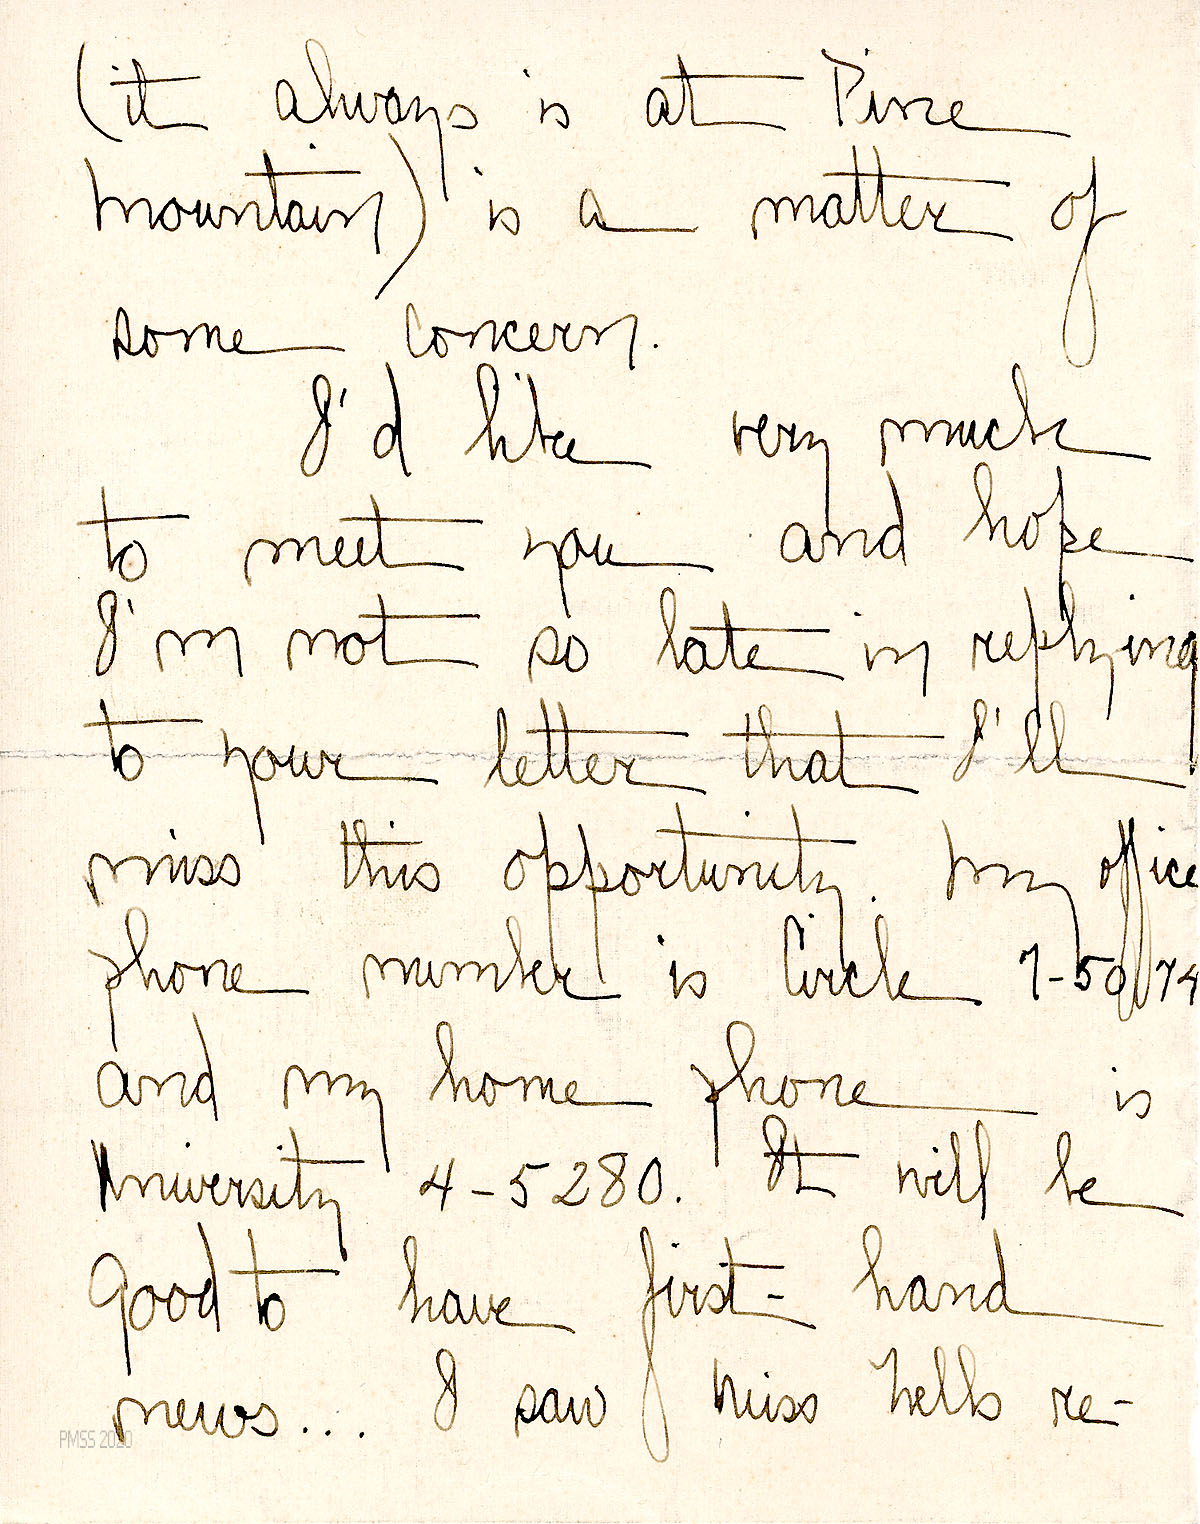 (it always is at Pine
Mountain) is a matter of
some concern.
I'd like very much
to meet you and hope
I'm not so late in replying
to your letter that I'll
miss this opportunity. My office
phone number is Circle 7-5074
and my home phone is
University 4-5280. It will be
good to have first-hand
news... I saw Miss Wells re-
PMSS 2020